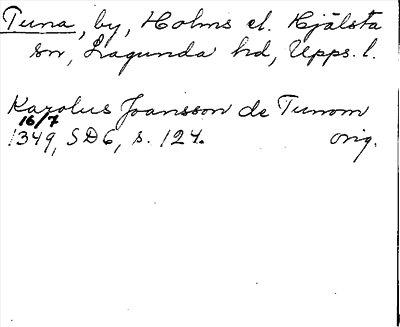 Tuna, by, Holms el. Hjälsta
sn, Lagunda hd, Upps. l.
Karolus Joansson de Tunom
16/7
1349, SD6, s. 124. orig.